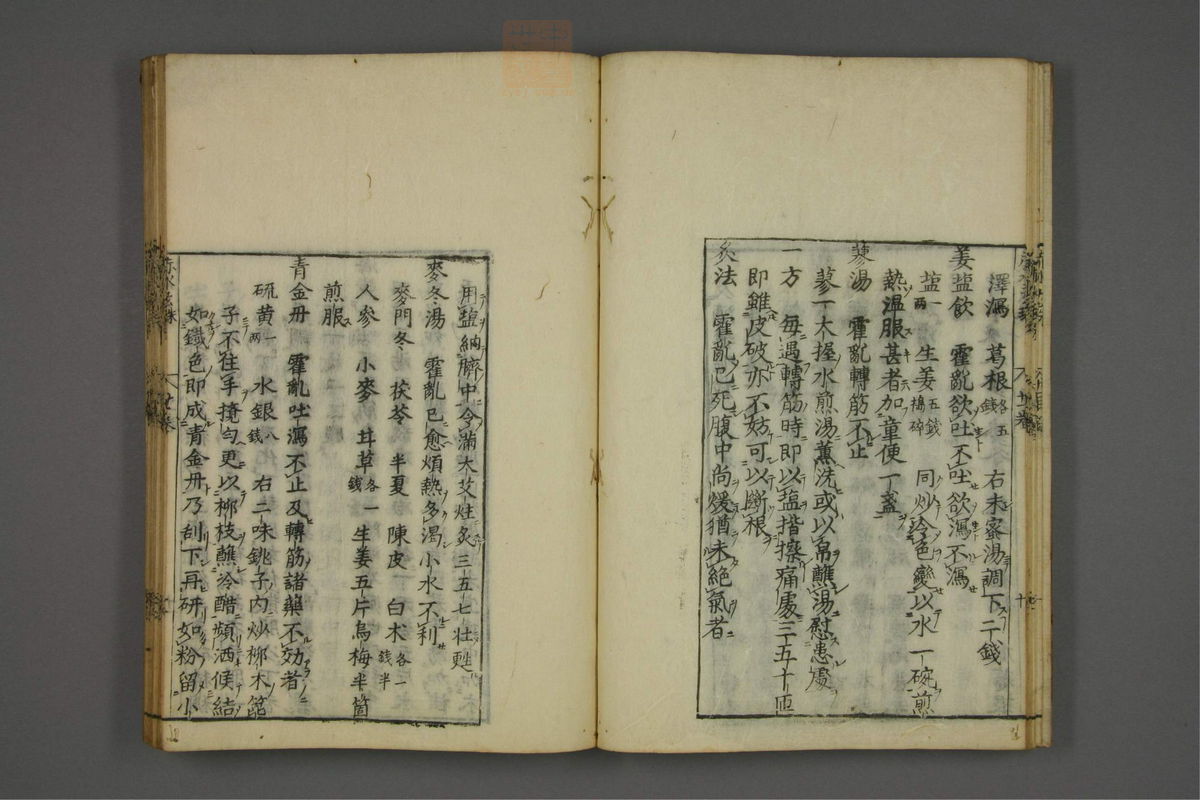 澤瀉　葛根各五錢　右末蜜湯調下二錢
姜塩飲　霍亂欲吐不吐欲瀉不瀉
塩一兩　生姜五錢搗碎　同炒色變以水一碗煎
熱温服甚者加童便一盞
蓼湯　霍亂轉筋不止
蓼一大握水煎湯薫洗或以帛蘸湯慰患處
一方　每遇轉筋時即以塩揩擦痛處三五十匝
即雖皮破亦不妨可以斷根
灸法　霍亂已死腹中尚煖猶未絶氣者
用塩納臍中令滿大艾炷灸三五七壯甦
麥冬湯　霍亂已愈煩熱多渴小水不利
麥門冬　茯苓　半夏　陳皮　白朮各一錢半
人參　小麥　甘草各一錢　生姜五片烏梅半箇
煎服
青金丹　霍亂吐瀉不止及轉筋諸藥不効者
硫黄一兩　水銀八錢　右二味銚子内炒栁木箆
子不住手攪匀更以栁枝蘸冷醋頻洒候結
如鐵色即成青金丹乃刮下再研如粉留小